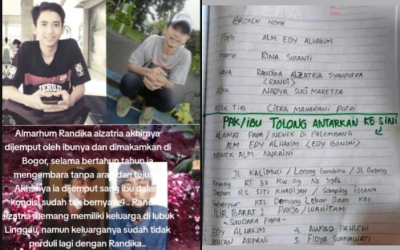 TERUJI
Almarhum Randika alzatria akhirnya
dijemput oleh ibunya dan dimakamkan di
Bogor, selama bertahun tahun ia
mengembara tanpa arah dan tujuan.
Akhirnya ia dijemput sang ibu dalam
kondisi sudah tak bernyawa.. Randika
Alzatria memang memiliki keluarga di lubuk
Linggau, namun keluarganya sudah tidak
perduli lagi dengan Randika..
BROKEN HOME
ALM EDY ALHAKIM
RINA SUSANTI
SAYA RANDIKA ALZATRIA SYAHPUTRA
(RANDI)
NADYA SUCI MAREETTA
CITRA MAHARANI PUTRI
PAK/IBU TOLONG ANTARKAN KE SINI
ALAMAT PAPA / NENEK DI PALEMBANG
ALM EDY ALHAKIM (EDY BONZAI)
NENEK ALM NURAINI
JL KALIMUSI / Lorong Gundira / JL Gudang
RT 37
RS SITI KHADIJAH / SAMPING ISTANA
Gubernur KEL Demang Lebar Daun KEC
ILIR BARAT I PAKJO/WAHITAM
SAUDARA PAPA
EDY ALHAKIM 4
ARMAN 5